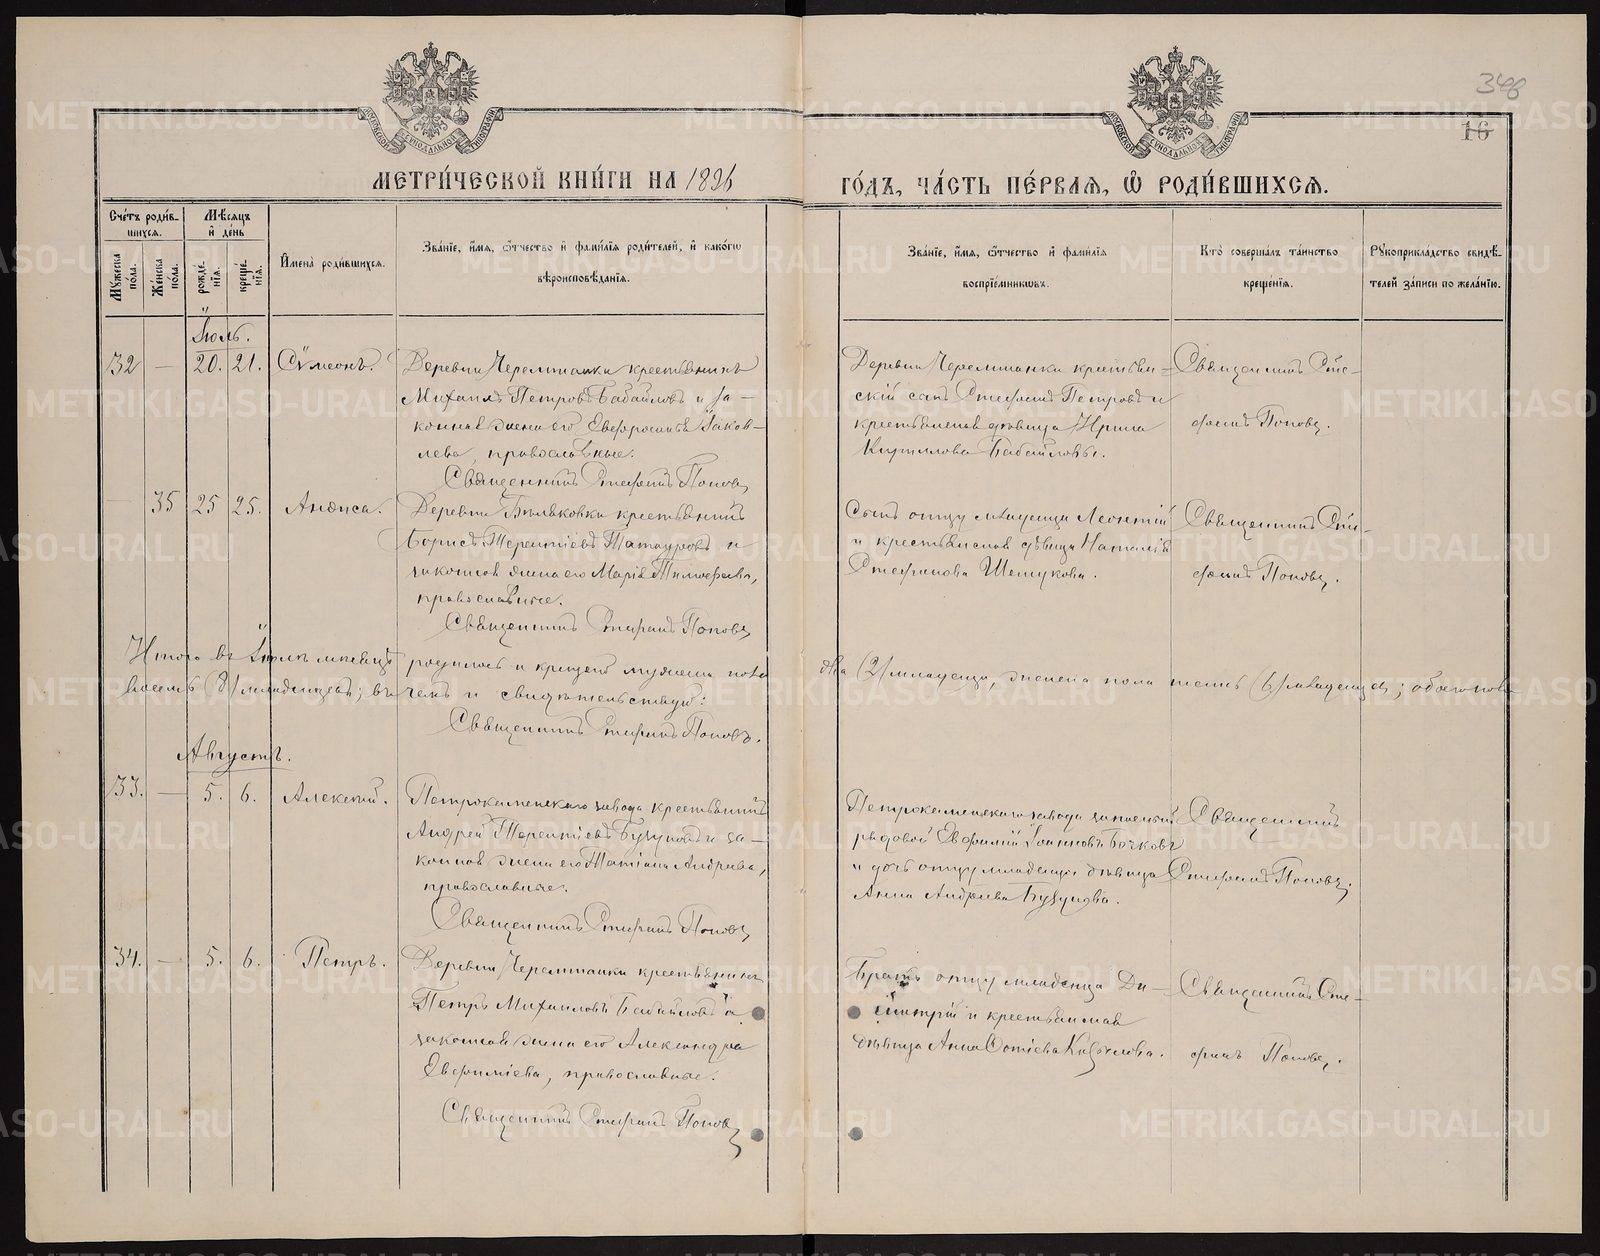 348
16
МЕТРИ́ЧЕСКОЙ КНИ́ГИ НА 1896
ГО́ДЪ, ЧА́СТЬ ПЕ́РВАѦ, Ѡ҆ РОДИ́ВШИХСѦ.
Сче́тъ роди́в-
шихся.
Мѣсяцъ
и҆ де́нь
Мꙋ́жеска по́ла.
Же́нска по́ла.
рожде́нїѧ.
креще́нїѧ.
И҆мена̀ роди́вшихся.
Зва́нїе, и҆́мѧ, ѻ҆́тчество и҆ фами́лїѧ роди́телей, и҆ како́гѡ
вѣроисповѣ́данїѧ.
Зва́нїе, и҆́мѧ, ѻ҆́тчество и҆ фами́лїѧ
воспрїе́мникѡвъ.
Кто̀ соверша́лъ та́инство
креще́нїѧ.
Рꙋкоприкла́дство свидѣ́-
телей за́писи по жела́нїю.
Іюль.
32 — 20. 21. Сѵмеонъ.
Деревни Черемшанки крестьянинъ
Михаилъ Петровъ Бабайловъ и за-
конная жена его Евфросинія Іаков-
лева, православные.
Священникъ Стефанъ Поповъ
Деревни Черемшанки крестьян-
скій сынъ Стефанъ Петровъ и
крестьянская дѣвица Ирина
Кириллова Бабайловы.
Священникъ Сте-
фанъ Поповъ.
— 35 25 25. Анфиса.
Деревни Бѣляковки крестьянинъ
Борисъ Терентіевъ Татауровъ и
законная жена его Марія Тимофеева,
православные.
Священникъ Стефанъ Поповъ
отцу младенца Леонтій
и крестьянская дѣвица Наталія
Стефанова Шешукова.
Священникъ Сте-
фанъ Поповъ.
Итого въ Іюлѣ мѣсяцѣ родилось и крещено мужеска пола два (2) младенца, женска пола шесть (6) младенцевъ; обоего пола
восемь (8) младенцевъ; въ чемъ и свидѣтельствуютъ:
Священникъ Стефанъ Поповъ.
Августъ.
33. — 5. 6. Алексій.
Петрокаменскаго завода крестьянинъ
Андрей Терентіевъ Бузуновъ и за-
конная жена его Татіана Андреева,
православные.
Священникъ Стефанъ Поповъ
Петрокаменскаго завода запасный
рядовой Евфимій Іоанновъ Бочковъ
и дочь отцу младенца дѣвица
Анна Андреева Бузунова.
Священникъ
Стефанъ Поповъ.
34. — 5. 6. Петръ.
Деревни Черемшанки крестьянинъ
Петръ Михаиловъ Бабайловъ и
законная жена его Александра
Евфиміева, православные.
Священникъ Стефанъ Поповъ
Братъ отцу младенца Ди-
митрій и крестьянская
дѣвица Анна Фотіева
Священникъ Сте-
фанъ Поповъ.
METRIKI.GASO-URAL.RU